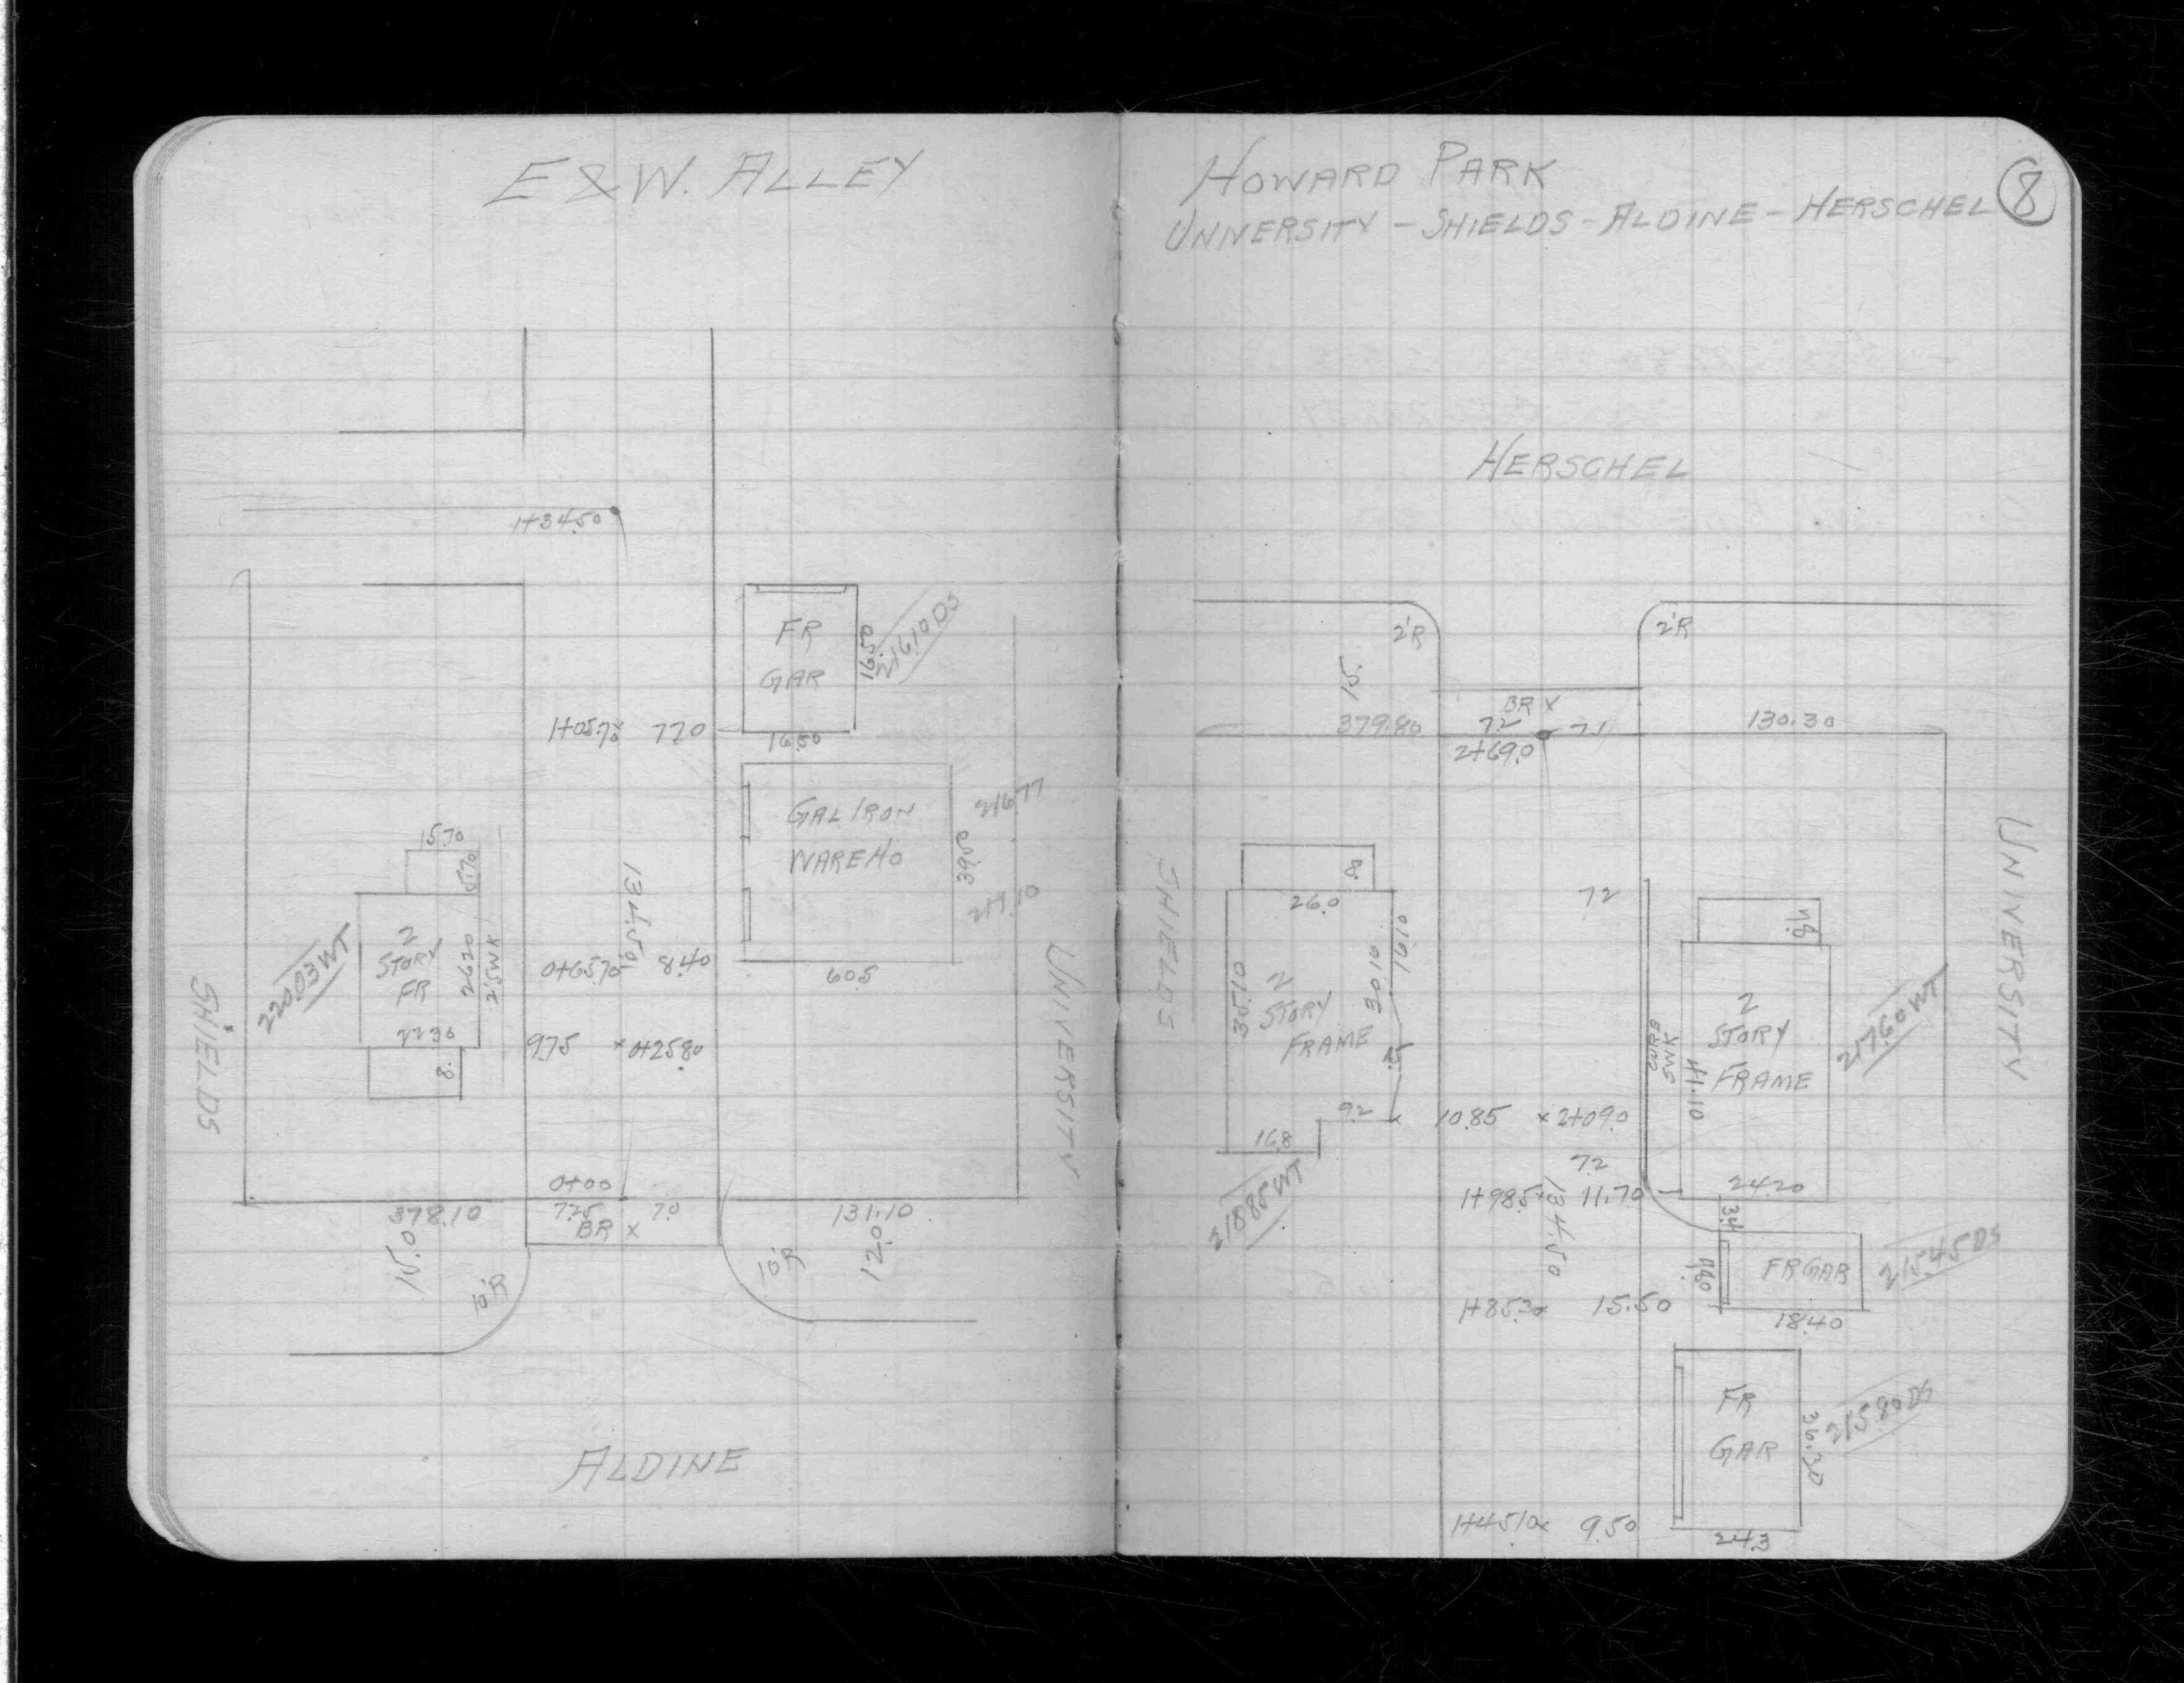 E & W. ALLEY
1+34.50
FR
GAR
16.50
216.10 DS
1+05.70 x 7.70
16.50
GAL IRON
WAREHO
39.50
216.77
217.10
60.5
15.70
5.70
2
STORY
FR
26.20
2.5 WK
22.30
8.
220.03 WT
134.50
0+65.70 8.40
9.75 x 0+25.80
SHIELDS
UNIVERSITY
0+00
378.10 7.25 7.0 131.10
BR x
15.0
10'R
10'R
12.0
ALDINE
HOWARD PARK
UNIVERSITY - SHIELDS - ALDINE - HERSCHEL
8
HERSCHEL
2'R
2'R
15.
BR x
379.80 7.2 7.1 130.30
2+69.0
SHIELDS
UNIVERSITY
8.
26.0
35.10
30.10
16.10
2
STORY
FRAME
9.2
16.8
218.85 WT
7.2
CURB
5 WK
41.10
2
STORY
FRAME
217.60 WT
10.85 x 2+09.0
7.2
1+98.5 x 11.70
24.20
134.50
3.4
FR GAR
215.45 DS
1+85.30 x 15.50
18.40
FR
GAR
36.30
215.80 DS
1+45.10 x 9.50
24.3